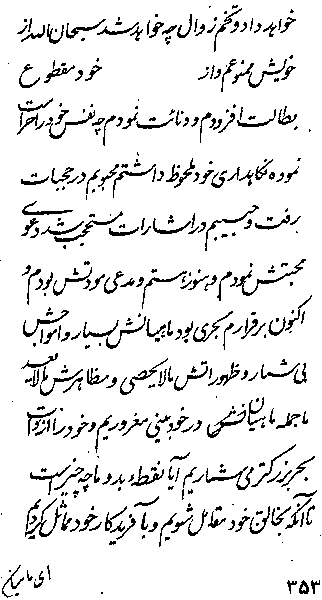 خواهد داد و تخم زوال چه خواهد شد سبحان الله از
خویش ممنوعم و از خود مقطوع
بطالت افزودم و دنائت نمودم چه نفس خود را حراست
نموده نگاهداری خود ملحوظ داشتم محبوبم در حجبات
برفت و حبیبم در اشارات محتجب شد دعوی
محبتش نمودم و هنوز هستم و مدعی مودتش بودم و
اکنون برقرارم بحری بود ماهیانش بسیار و امواجش
بی شمار و ظهوراتش مالایحصی و مظاهرش مالایعد
ما جمله ماهیان در خودبینی مغروریم و خود را از ذات
بحر بزرگتر می شماریم آیا نقطه بدو ما چه چیز است
تا آنکه بخالق خود مقابل شویم و با آفریدکار خود مماثل گردیم
ای ماهیان
۳۵۳